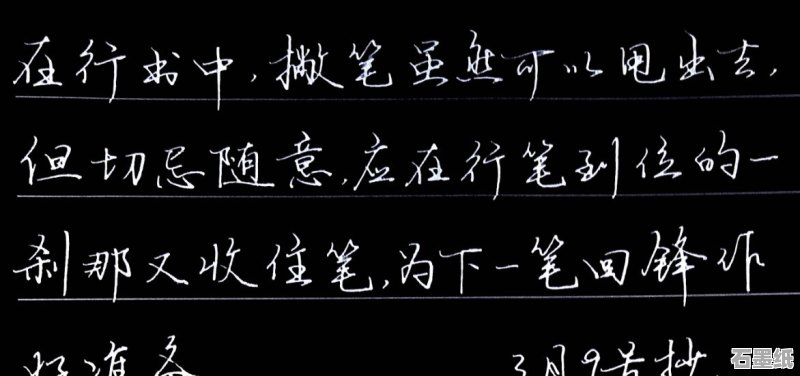 在行书中,撇笔虽然可以甩出去,
但切忌随意,应在行笔到位的一
刹那又收住笔,为下一笔回锋作
好准备 3月9号抄
石墨纸